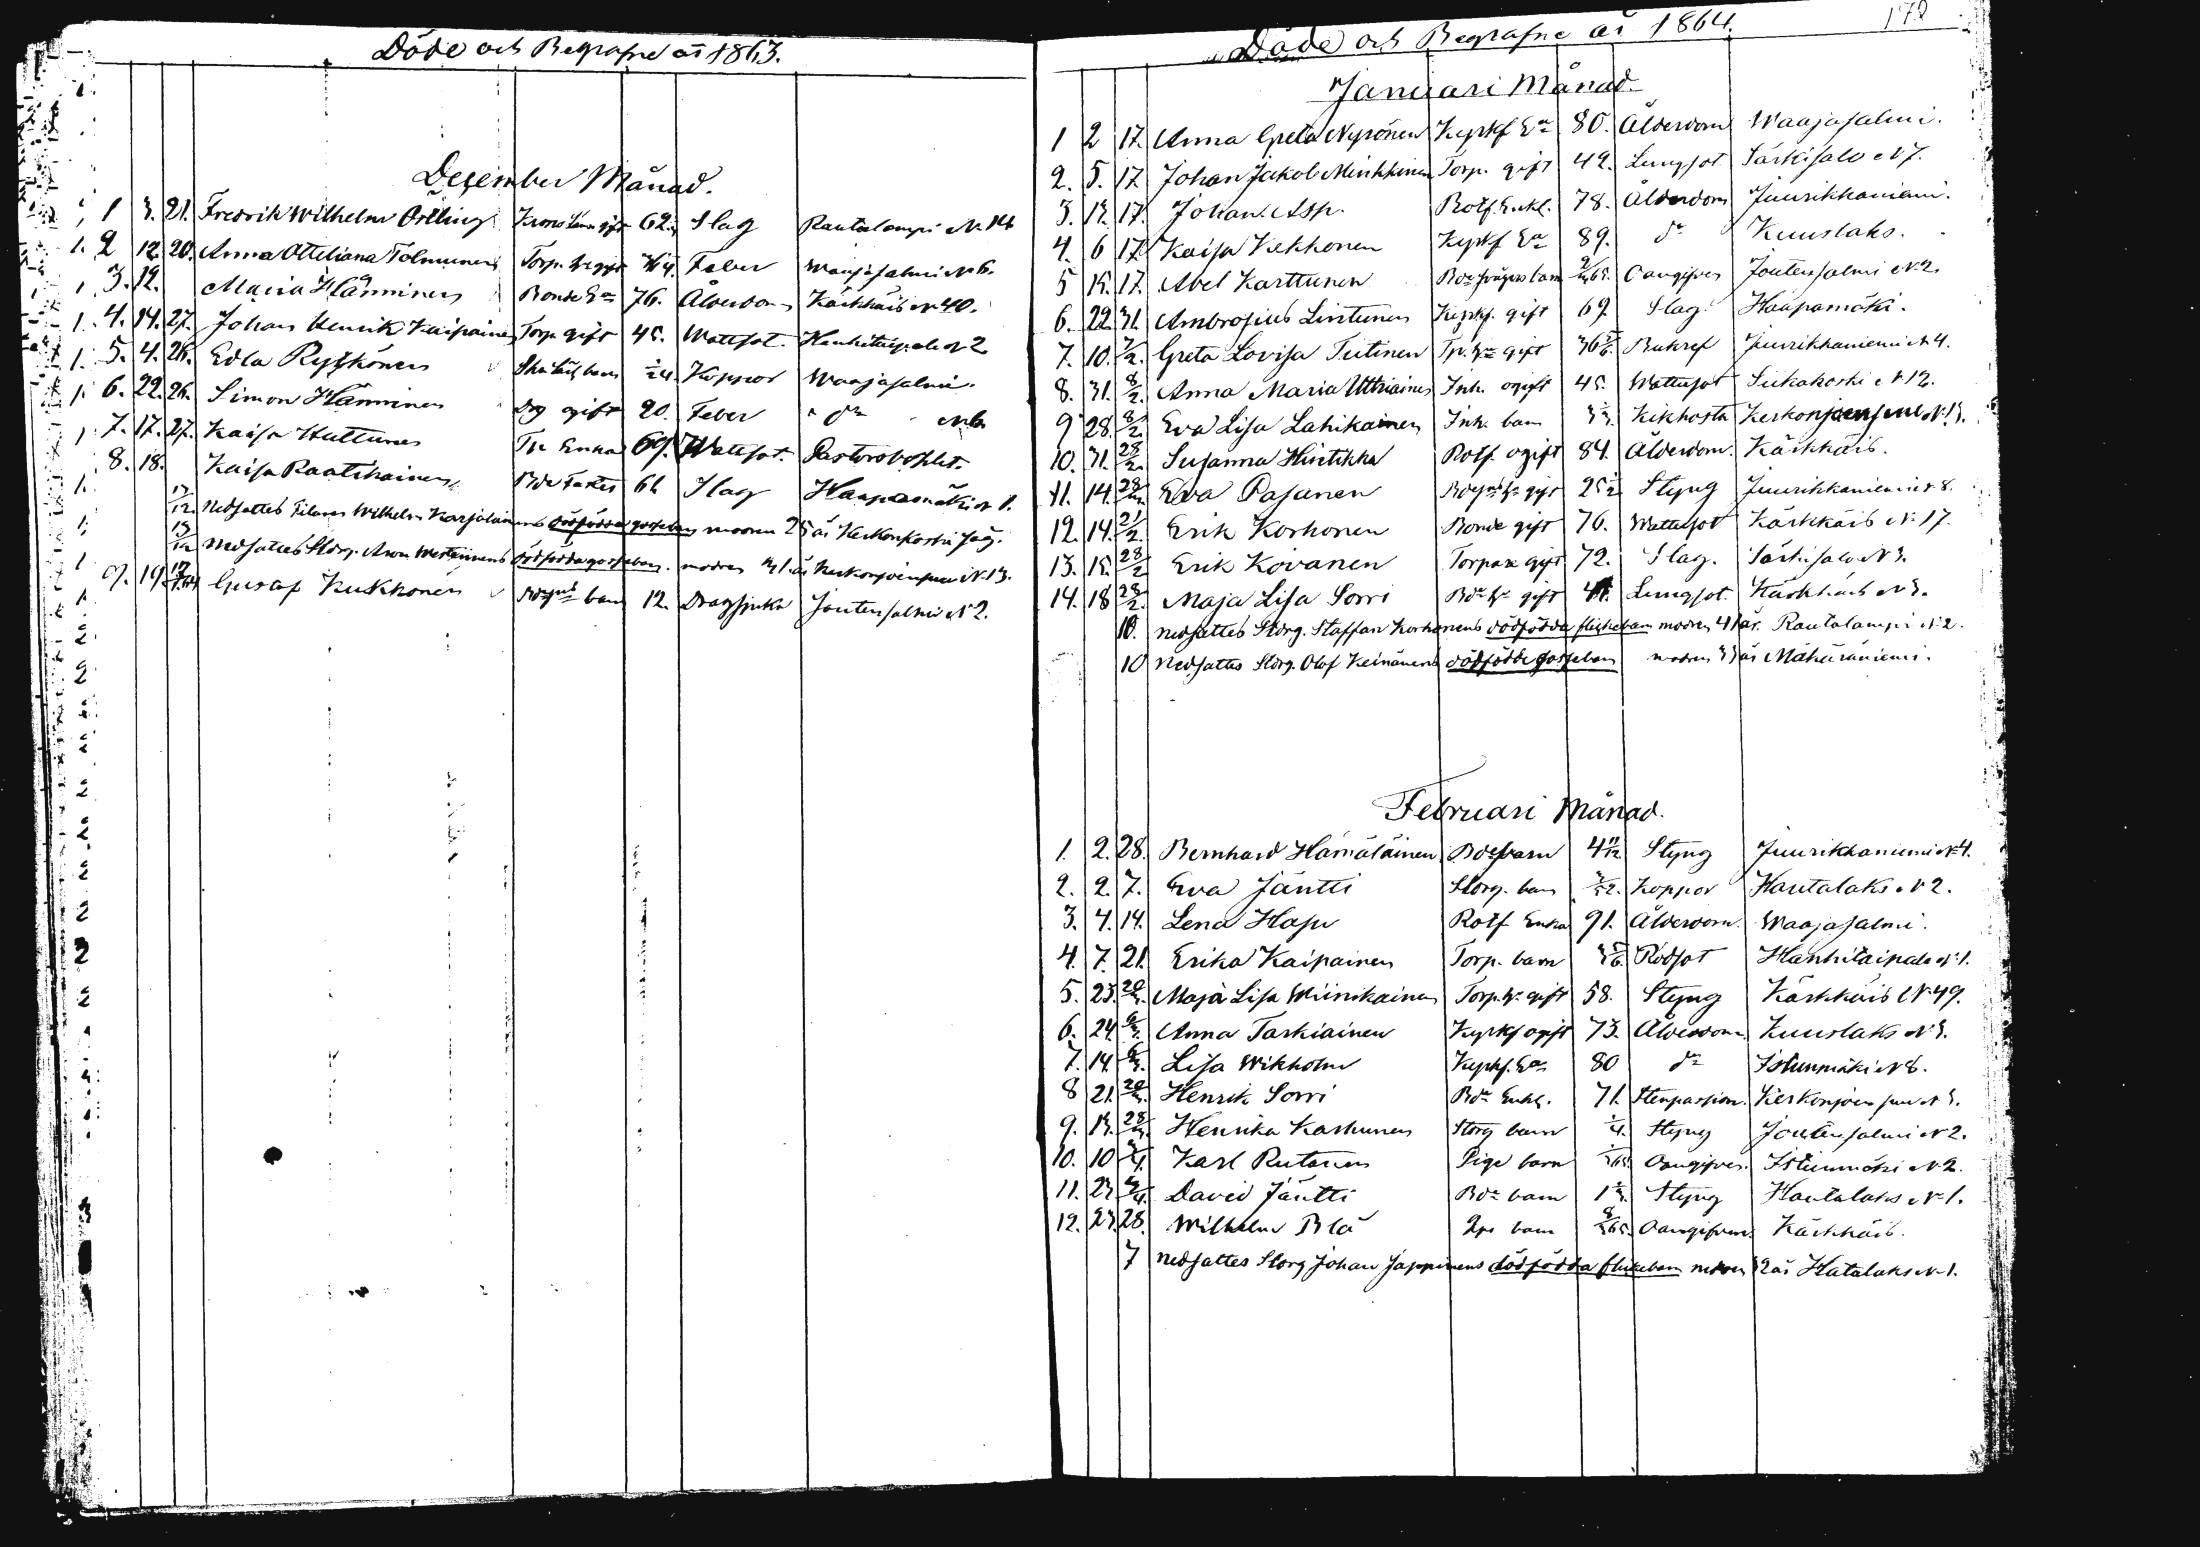 Döde och Begrafne år 1863.
December Månad.
1 3. 21. Fredrik Wilhelm Örtling gift 62. Slag Rautalampi N 14
2 12. 20. Anna Ottiliana Tolmunen Torp. Feber Waajasalmi N 6.
3. 12. Maria Hänninen Bonde Ea 76. Ålderdom Kärkkäis N 40.
4. 14. 27. Johan Henrik Kaipainen Torp. gift 45. Wattsot. Hankitaipale N 2
5. 4. 26. Edla Rytkönen barn Koppor Waajasalmi.
6. 22. 26. Simon Hänninen Drg gift 20. Feber do N 6
7. 17. 27. Kaisa Huttunen Enka 69. Wattsot. Pastorsbohlet.
8. 18. Kaisa Raatikainen 66 Slag Haapamäki N 1.
13/12 Nedsattes Wilhelm Karjalainens dödfödda gossebarn modren 25 år Kerkonkoski såg.
13/12 Nedsattes Storg. Aron Westerinens dödfödda gossebarn. modren 41 år Kerkonjoensuu N 13.
9. 19. Gustaf Kukkonen barn 12. Dragsjuka Joutensalmi N 2.
Döde och Begrafne år 1864. 172
Januari Månad.
1 2 17. Anna Greta Nyrönen Kyrkf Ea 80. Ålderdom Waajasalmi.
2. 5. 17. Johan Jakob Minkkinen Torp. gift 42. Lungsot Särkisalo N 7.
3. 13. 17. Johan Asp. Rotf. Enkl. 78. Ålderdom Juurikkaniemi.
4. 6 17. Kaisa Kekkonen Kyrkf Ea 89. do Kuuslaks.
5 15. 17. Abel Karttunen barn Oangifven Joutensalmi N 2.
6. 22. 31. Ambrosius Lintunen Kyrkf. gift 69. Slag Haapamäki.
7. 10. 7/2. Greta Lovisa Tiitinen gift Bukref Juurikkaniemi N 4.
8. 31. 8/2. Anna Maria Uttriainen Inh. ogift 45. Wattusot Sukakoski N 12.
9 28. 8/2. Eva Lisa Lahikainen Inh. barn Kikhosta Kerkonjoensuu N 13.
10. 31. 28/2. Susanna Hintikka Rotf. ogift 84. Ålderdom. Kärkkäis.
11. 14. 28/2. Eva Pasanen gift Styng Juurikkaniemi N 8.
12. 14. 21/2. Erik Korhonen Bonde gift 76. Wattusot Kärkkäis N 17.
13. 15. 28/2 Erik Kovanen Torpare gift 72. Slag. Särkisalo N 3.
14. 18 28/2. Maja Lisa Sorri gift Lungsot. Kärkkäis N 3.
10. nedsattes Storg. Staffan Korhonens dödfödda flickebarn modren 41 år. Rautalampi N 2.
10 Nedsattes Storg. Olof Keinänens dödfödde gossebarn modren 33 år Mäkäräniemi.
Februari Månad.
1. 2. 28. Bernhard Hämäläinen Bdebarn 4 11/12 Styng Juurikkaniemi N 4.
2. 2. 7. Eva Jäntti Storg. barn Koppor Hautalaks N 2.
3. 4. 14. Lena Hapu Rotf Enka 91. Ålderdom. Waajasalmi.
4. 7. 21. Erika Kaipainen Torp. barn Rödsot Hankitaipale N 1.
5. 23. Maja Lisa Miinikainen Torp. gift 58. Styng Kärkkäis N 49.
6. 24. Anna Tarkiainen Kyrkf ogift 73. Ålderdom. Kuuslaks N 3.
7. 14. Lisa Wikholm Kyrkf. Ea 80 do Istunmäki N 8.
8 21. Henrik Sorri Bde Enkl. 71. Stenpassion. Kerkonjoensuu N 3.
9. 13. Henrika Karhunen Storg barn Styng Joutensalmi N 2.
10. 10 Karl Rutanen Pige barn Oangifven. Istunmäki N 2.
11. 23 David Jäntti Bde barn Styng Hautalaks N 1.
12. 23. 28. Wilhelm Blå barn Oangifven. Kärkkäis.
7 nedsattes Storg Johan Jappinens dödfödda flickebarn modren 32 år Hatalaks N 1.